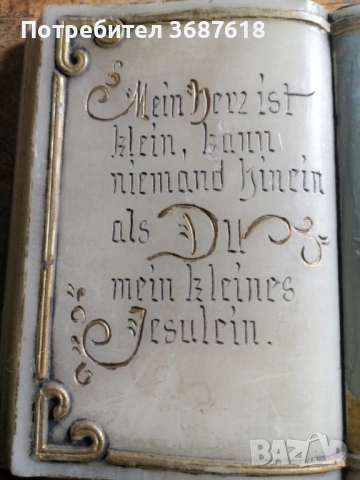 Потребител 3687618
Mein Herz ist
klein, kann
niemand hinein
als Du
mein kleines
Jesulein.
BAZAR